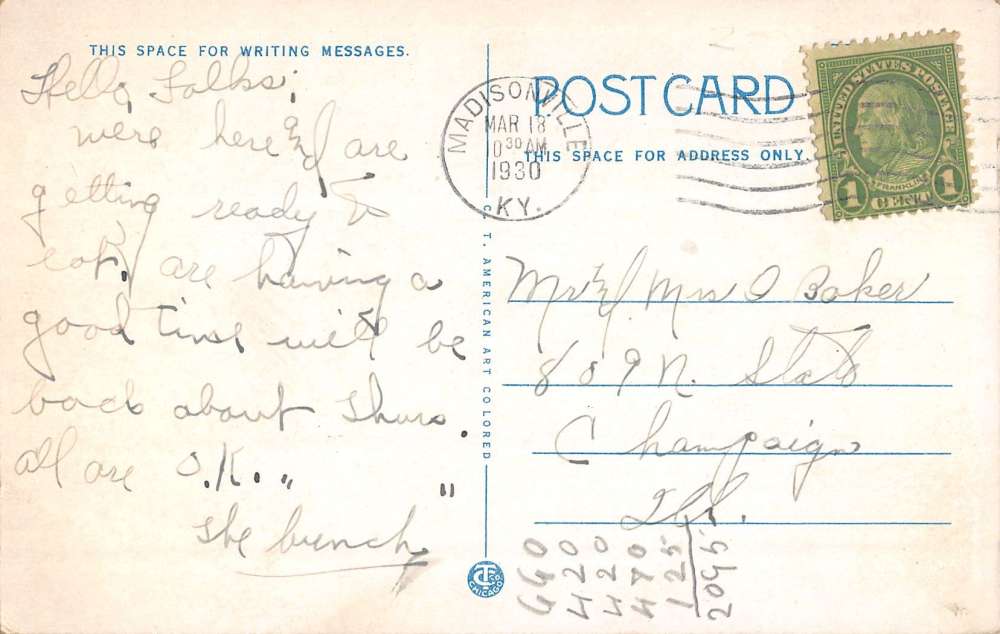 THIS SPACE FOR WRITING MESSAGES.
Hello Folks;
were here & are
getting ready to
eat, are having a
good time will be
back about Thurs.
all are O.K. " "
The bunch
C. T. AMERICAN ART COLORED
CTCO. CHICAGO
POST CARD
THIS SPACE FOR ADDRESS ONLY.
MADISONVILLE
MAR 18
30 AM
1930
KY.
UNITED STATES POSTAGE
FRANKLIN
1 CENT 1
Mr & Mrs O Baker
809 N. State
Champaign
Ill.
660
420
420
470
125
2095